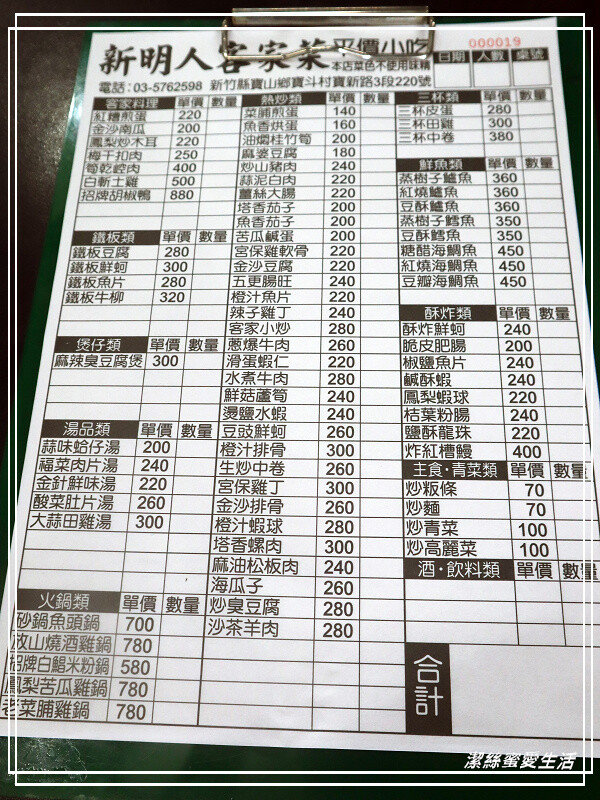 新明人客家菜 平價小吃
本店菜色不使用味精
000019
日期 人數 桌號
電話:03-5762598 新竹縣寶山鄉寶斗村寶新路3段220號
客家料理 單價 數量
紅糟煎蛋 220
金沙南瓜 200
鳳梨炒木耳 220
梅干扣肉 250
筍乾崆肉 400
白斬土雞 500
招牌胡椒鴨 880
鐵板類 單價 數量
鐵板豆腐 280
鐵板鮮蚵 300
鐵板魚片 280
鐵板牛柳 320
煲仔類 單價 數量
麻辣臭豆腐煲 300
湯品類 單價 數量
蒜味蛤仔湯 200
福菜肉片湯 240
金針鮮味湯 220
酸菜肚片湯 260
大蒜田雞湯 300
火鍋類 單價 數量
砂鍋魚頭鍋 700
放山燒酒雞鍋 780
招牌白鯧米粉鍋 580
鳳梨苦瓜雞鍋 780
老菜脯雞鍋 780
熱炒類 單價 數量
菜脯煎蛋 140
魚香烘蛋 160
油燜桂竹筍 200
麻婆豆腐 180
炒山豬肉 240
蒜泥白肉 220
薑絲大腸 220
塔香茄子 200
魚香茄子 200
苦瓜鹹蛋 200
宮保雞軟骨 220
金沙豆腐 220
五更腸旺 240
橙汁魚片 220
辣子雞丁 240
客家小炒 280
蔥爆牛肉 280
滑蛋蝦仁 220
水煮牛肉 280
鮮菇蘆筍 240
燙鹽水蝦 240
豆豉鮮蚵 260
橙汁排骨 300
生炒中卷 260
宮保雞丁 300
金沙排骨 260
橙汁蝦球 280
塔香螺肉 300
麻油松板肉 240
海瓜子 260
炒臭豆腐 280
沙茶羊肉 280
三杯類 單價 數量
三杯皮蛋 280
三杯田雞 300
三杯中卷 380
鮮魚類 單價 數量
蒸樹子鱸魚 360
紅燒鱸魚 360
豆酥鱸魚 360
蒸樹子鱈魚 350
豆酥鱈魚 350
糖醋海鯛魚 450
紅燒海鯛魚 450
豆瓣海鯛魚 450
酥炸類 單價 數量
酥炸鮮蚵 240
脆皮肥腸 200
椒鹽魚片 240
鹹酥蝦 240
鳳梨蝦球 220
桔葉粉腸 240
鹽酥龍珠 220
炸紅槽鰻 400
主食·青菜類 單價 數量
炒粄條 70
炒麵 70
炒青菜 100
炒高麗菜 100
酒·飲料類 單價 數量
合計
潔絲蜜愛生活